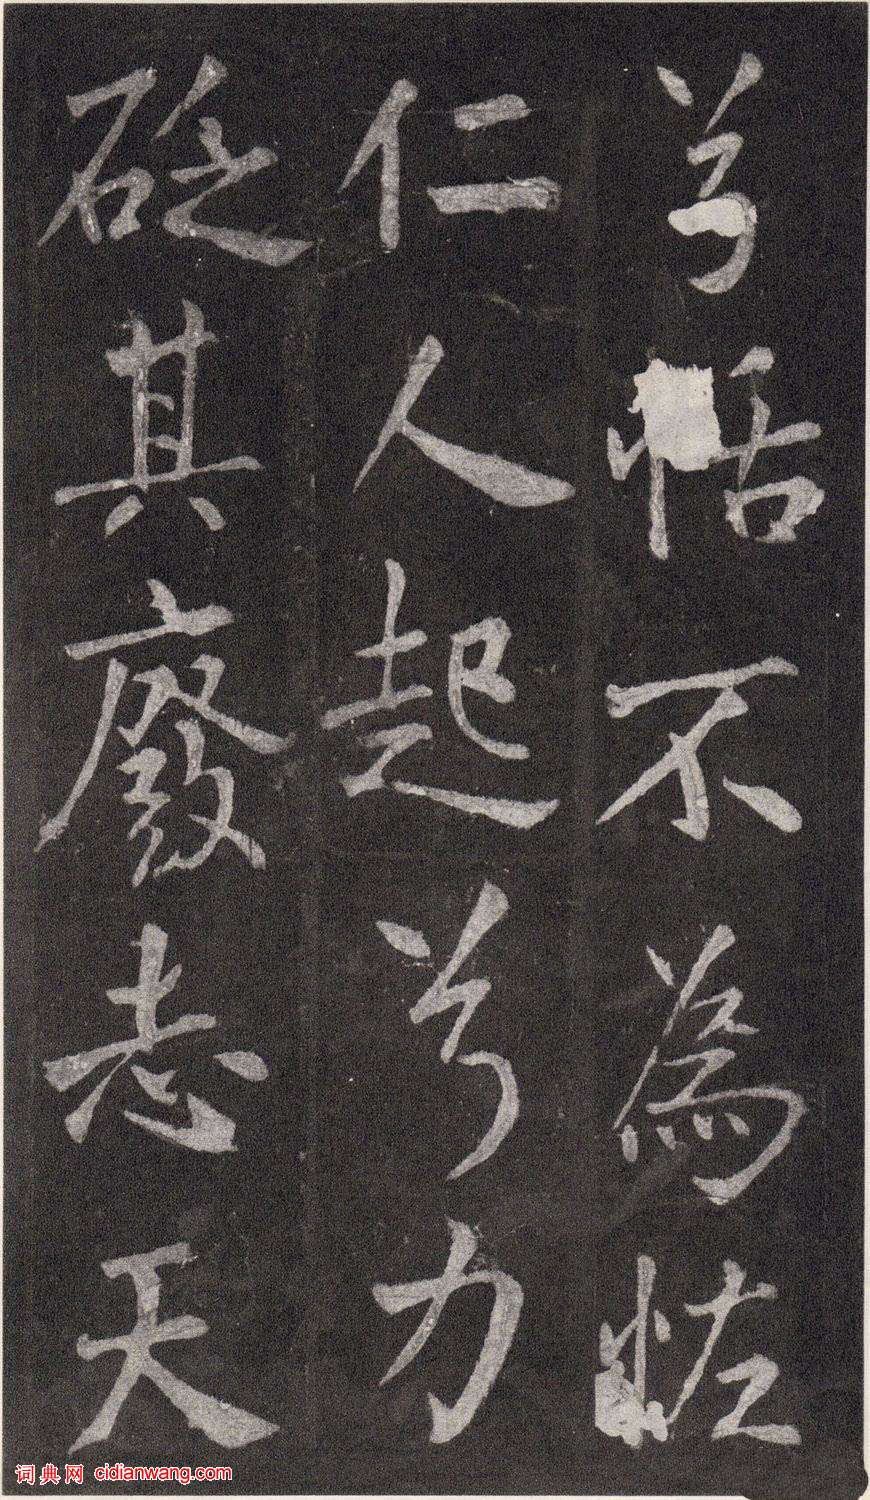 兮恬不為恠
仁人起兮力
砭其廢志天
词典网 cidianwang.com